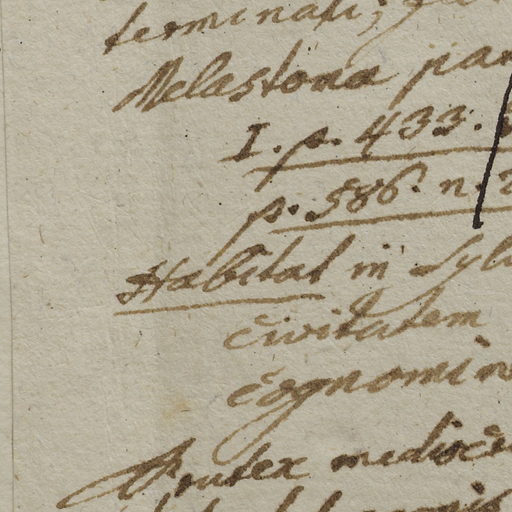 terminali;
Melastoma par
I. p. 433.
p. 586. n. 2
Habitat in Sylv
civitatem
cognomin
Frutex medioc